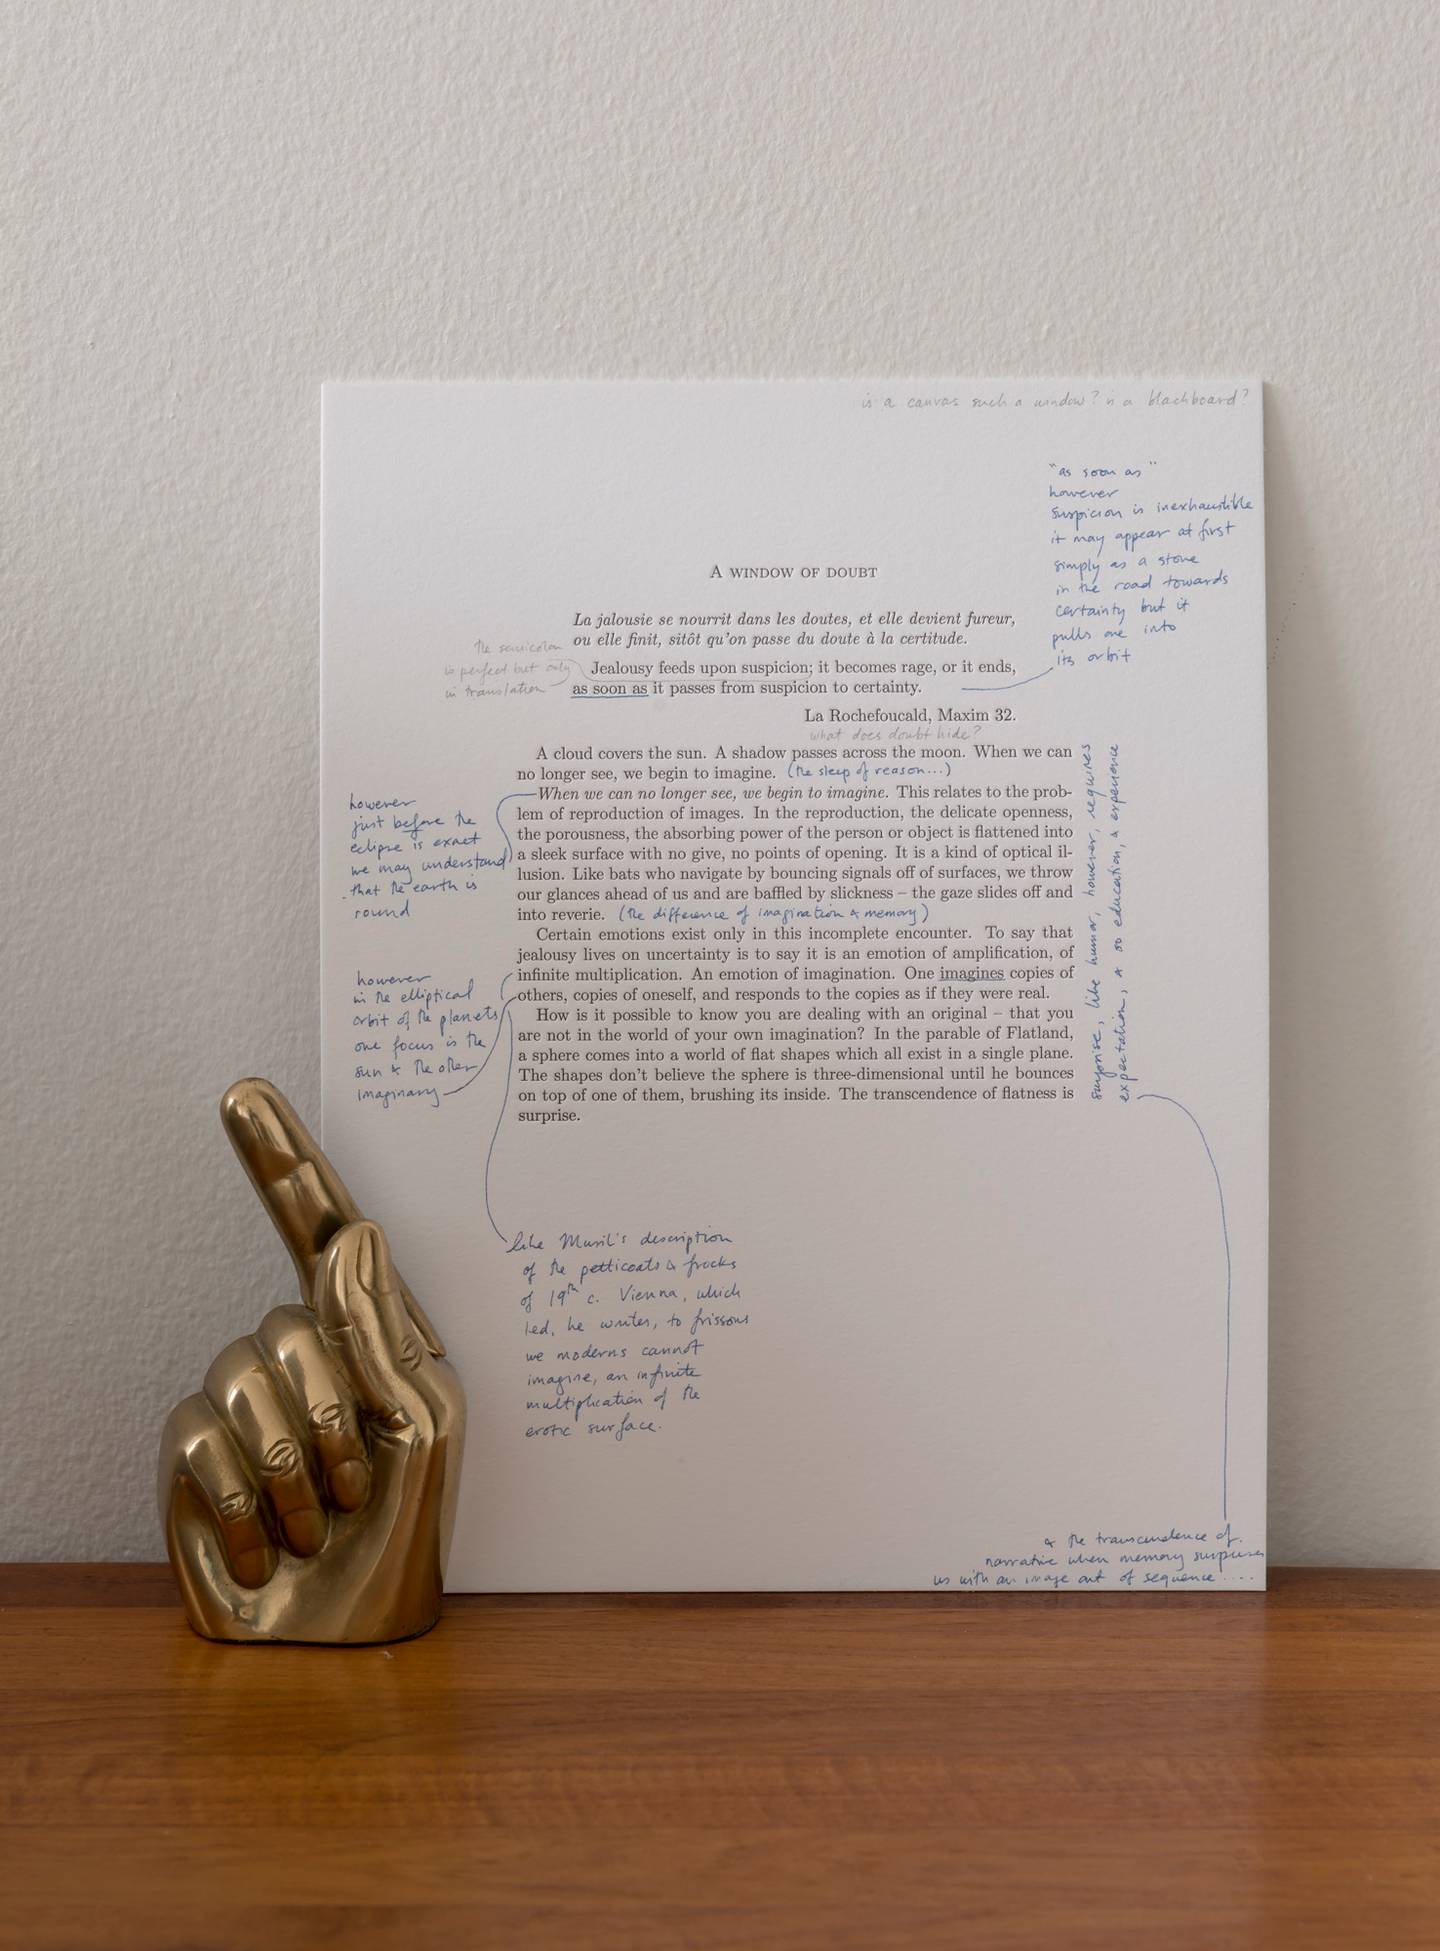 is a canvas such a window? is a blackboard?
"as soon as"
however
suspicion is inexhaustible
it may appear at first
simply as a stone
in the road towards
certainty but it
pulls one into
its orbit
A WINDOW OF DOUBT
La jalousie se nourrit dans les doutes, et elle devient fureur,
ou elle finit, sitôt qu'on passe du doute à la certitude.
the semicolon
is perfect but only
in translation
Jealousy feeds upon suspicion; it becomes rage, or it ends,
as soon as it passes from suspicion to certainty.
La Rochefoucald, Maxim 32.
what does doubt hide?
A cloud covers the sun. A shadow passes across the moon. When we can
no longer see, we begin to imagine. (the sleep of reason...)
When we can no longer see, we begin to imagine. This relates to the prob-
lem of reproduction of images. In the reproduction, the delicate openness,
the porousness, the absorbing power of the person or object is flattened into
a sleek surface with no give, no points of opening. It is a kind of optical il-
lusion. Like bats who navigate by bouncing signals off of surfaces, we throw
our glances ahead of us and are baffled by slickness – the gaze slides off and
into reverie. (the difference of imagination & memory)
Certain emotions exist only in this incomplete encounter. To say that
jealousy lives on uncertainty is to say it is an emotion of amplification, of
infinite multiplication. An emotion of imagination. One imagines copies of
others, copies of oneself, and responds to the copies as if they were real.
How is it possible to know you are dealing with an original – that you
are not in the world of your own imagination? In the parable of Flatland,
a sphere comes into a world of flat shapes which all exist in a single plane.
The shapes don't believe the sphere is three-dimensional until he bounces
on top of one of them, brushing its inside. The transcendence of flatness is
surprise.
however
just before the
eclipse is exact
we may understand
that the earth is
round
however
in the elliptical
orbit of the planets
one focus is the
sun & the other
imaginary
surprise, like humor, however, requires
expectation, & so education, & experience
like Musil's description
of the petticoats & frocks
of 19th c. Vienna, which
led, he writes, to frissons
we moderns cannot
imagine, an infinite
multiplication of the
erotic surface.
& the transcendence of
narrative when memory surprises
us with an image out of sequence ....